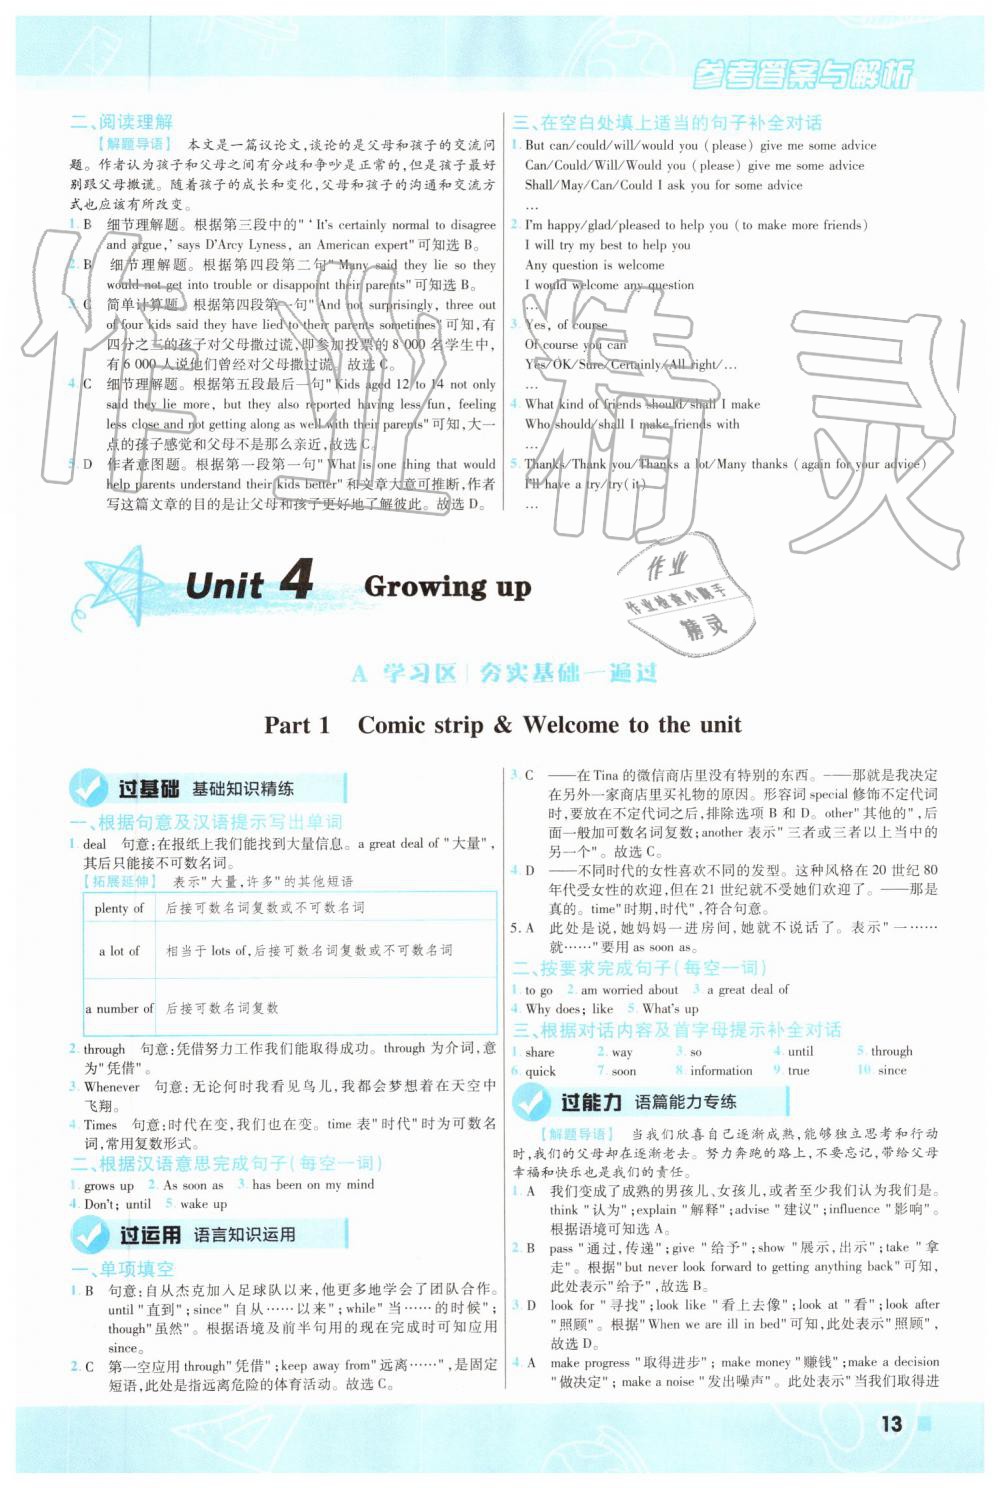 参考答案与解析
二、阅读理解
【解题导语】 本文是一篇议论文,谈论的是父母和孩子的交流问
题。作者认为孩子和父母之间有分歧和争吵是正常的,但是孩子最好
别跟父母撒谎。随着孩子的成长和变化,父母和孩子的沟通和交流方
式也应该有所改变。
1. B 细节理解题。根据第三段中的"‘It's certainly normal to disagree
and argue,’ says D'Arcy Lyness, an American expert"可知选 B。
2. B 细节理解题。根据第四段第二句"Many said they lie so they
would not get into trouble or disappoint their parents"可知选 B。
3. C 简单计算题。根据第四段第一句"And not surprisingly, three out
of four kids said they have lied to their parents sometimes"可知,有
四分之三的孩子对父母撒过谎,即参加投票的 8 000 名学生中,
有 6 000 人说他们曾经对父母撒过谎。故选 C。
4. C 细节理解题。根据第五段最后一句"Kids aged 12 to 14 not only
said they lie more, but they also reported having less fun, feeling
less close and not getting along as well with their parents"可知,大一
点的孩子感觉和父母不是那么亲近,故选 C。
5. D 作者意图题。根据第一段第一句"What is one thing that would
help parents understand their kids better"和文章大意可推断,作者
写这篇文章的目的是让父母和孩子更好地了解彼此。故选 D。
三、在空白处填上适当的句子补全对话
1. But can/could/will/would you (please) give me some advice
Can/Could/Will/Would you (please) give me some advice
Shall/May/Can/Could I ask you for some advice
…
2. I'm happy/glad/pleased to help you (to make more friends)
I will try my best to help you
Any question is welcome
I would welcome any question
…
3. Yes, of course
Of course you can
Yes/OK/Sure/Certainly/All right/…
…
4. What kind of friends should/shall I make
Who should/shall I make friends with
…
5. Thanks/Thank you/Thanks a lot/Many thanks (again for your advice)
I'll have a try/try(it)
…
Unit 4 Growing up
A 学习区 | 夯实基础一遍过
Part 1 Comic strip & Welcome to the unit
过基础 基础知识精练
一、根据句意及汉语提示写出单词
1. deal 句意:在报纸上我们能找到大量信息。a great deal of "大量",
其后只能接不可数名词。
【拓展延伸】 表示"大量,许多"的其他短语
plenty of 后接可数名词复数或不可数名词
a lot of 相当于 lots of,后接可数名词复数或不可数名词
a number of 后接可数名词复数
2. through 句意:凭借努力工作我们能取得成功。through 为介词,意
为"凭借"。
3. Whenever 句意:无论何时我看见鸟儿,我都会梦想着在天空中
飞翔。
4. Times 句意:时代在变,我们也在变。time 表"时代"时为可数名
词,常用复数形式。
二、根据汉语意思完成句子(每空一词)
1. grows up 2. As soon as 3. has been on my mind
4. Don't; until 5. wake up
过运用 语言知识运用
一、单项填空
1. B 句意:自从杰克加入足球队以来,他更多地学会了团队合作。
until "直到";since"自从……以来";while"当……的时候";
though"虽然"。根据语境及前半句用的现在完成时可知应用
since。
2. C 第一空应用 through"凭借";keep away from"远离……",是固定
短语,此处是指远离危险的体育活动。故选 C。
3. C ——在 Tina 的微信商店里没有特别的东西。——那就是我决定
在另外一家商店里买礼物的原因。形容词 special 修饰不定代词
时,要放在不定代词之后,排除选项 B 和 D。other"其他的",后
面一般加可数名词复数;another 表示"三者或三者以上当中的
另一"。故选 C。
4. D ——不同时代的女性喜欢不同的发型。这种风格在 20 世纪 80
年代受女性的欢迎,但在 21 世纪就不受她们欢迎了。——那是
真的。time"时期,时代",符合句意。
5. A 此处是说,她妈妈一进房间,她就不说话了。表示"一……
就……"要用 as soon as。
二、按要求完成句子(每空一词)
1. to go 2. am worried about 3. a great deal of
4. Why does; like 5. What's up
三、根据对话内容及首字母提示补全对话
1. share 2. way 3. so 4. until 5. through
6. quick 7. soon 8. information 9. true 10. since
过能力 语篇能力专练
【解题导语】 当我们欣喜自己逐渐成熟,能够独立思考和行动
时,我们的父母却在逐渐老去。努力奔跑的路上,不要忘记,带给父母
幸福和快乐也是我们的责任。
1. A 我们变成了成熟的男孩儿、女孩儿,或者至少我们认为我们是。
think "认为";explain "解释";advise "建议";influence "影响"。
根据语境可知选 A。
2. B pass "通过,传递";give "给予";show "展示,出示";take "拿
走"。根据"but never look forward to getting anything back"可知,
此处表示"给予",故选 B。
3. D look for "寻找";look like "看上去像";look at "看";look after
"照顾"。根据"When we are ill in bed"可知,此处表示"照顾",
故选 D。
4. A make progress "取得进步";make money "赚钱";make a decision
"做决定";make a noise "发出噪声"。此处表示"当我们取得进
13
作业精灵
作业
作业检查小助手
精灵